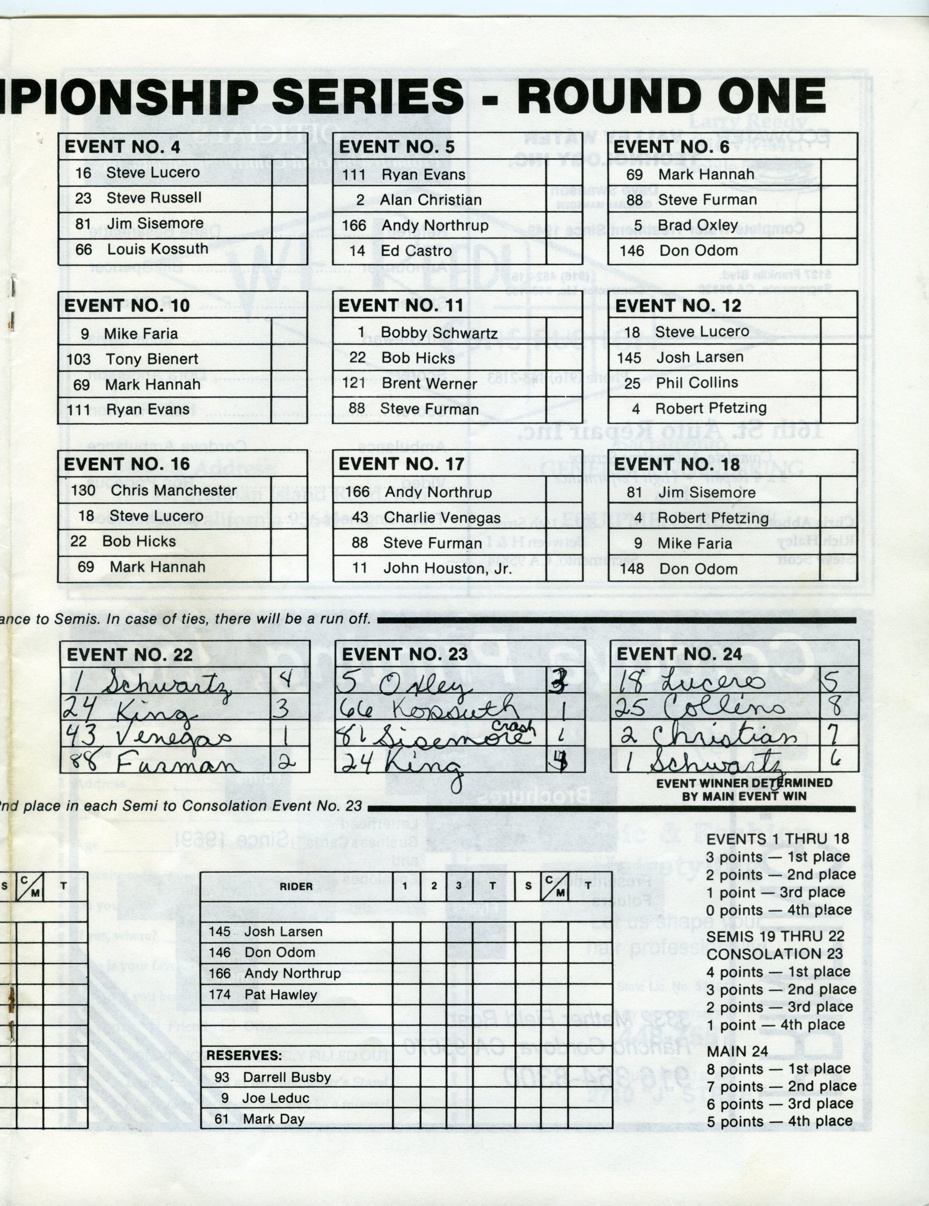 MPIONSHIP SERIES - ROUND ONE
EVENT NO. 4
16 Steve Lucero
23 Steve Russell
81 Jim Sisemore
66 Louis Kossuth
EVENT NO. 5
111 Ryan Evans
2 Alan Christian
166 Andy Northrup
14 Ed Castro
EVENT NO. 6
69 Mark Hannah
88 Steve Furman
5 Brad Oxley
146 Don Odom
EVENT NO. 10
9 Mike Faria
103 Tony Bienert
69 Mark Hannah
111 Ryan Evans
EVENT NO. 11
1 Bobby Schwartz
22 Bob Hicks
121 Brent Werner
88 Steve Furman
EVENT NO. 12
18 Steve Lucero
145 Josh Larsen
25 Phil Collins
4 Robert Pfetzing
EVENT NO. 16
130 Chris Manchester
18 Steve Lucero
22 Bob Hicks
69 Mark Hannah
EVENT NO. 17
166 Andy Northrup
43 Charlie Venegas
88 Steve Furman
11 John Houston, Jr.
EVENT NO. 18
81 Jim Sisemore
4 Robert Pfetzing
9 Mike Faria
148 Don Odom
ance to Semis. In case of ties, there will be a run off.
EVENT NO. 22
1 Schwartz 4
24 King 3
43 Venegas 1
88 Furman 2
EVENT NO. 23
5 Oxley
66 Kossuth 1
81 Sisemore crash
24 King
EVENT NO. 24
18 Lucero 5
25 Collins 8
2 Christian 7
1 Schwartz 6
EVENT WINNER DETERMINED
BY MAIN EVENT WIN
2nd place in each Semi to Consolation Event No. 23
S C/M T
RIDER 1 2 3 T S C/M T
145 Josh Larsen
146 Don Odom
166 Andy Northrup
174 Pat Hawley
RESERVES:
93 Darrell Busby
9 Joe Leduc
61 Mark Day
EVENTS 1 THRU 18
3 points — 1st place
2 points — 2nd place
1 point — 3rd place
0 points — 4th place
SEMIS 19 THRU 22
CONSOLATION 23
4 points — 1st place
3 points — 2nd place
2 points — 3rd place
1 point — 4th place
MAIN 24
8 points — 1st place
7 points — 2nd place
6 points — 3rd place
5 points — 4th place